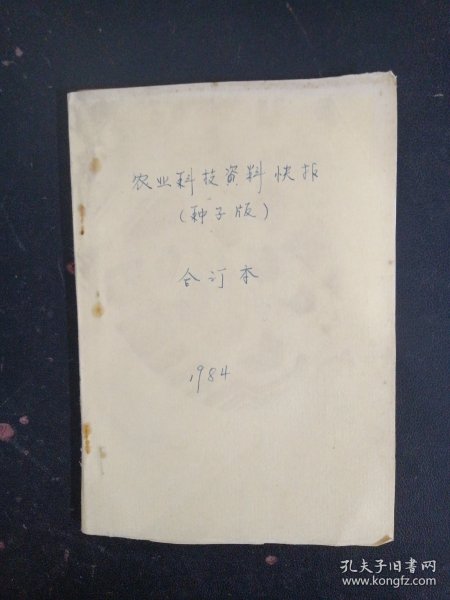 农业科技资料快报
（种子版）
合订本
1984
孔夫子旧书网
www.kongfz.com